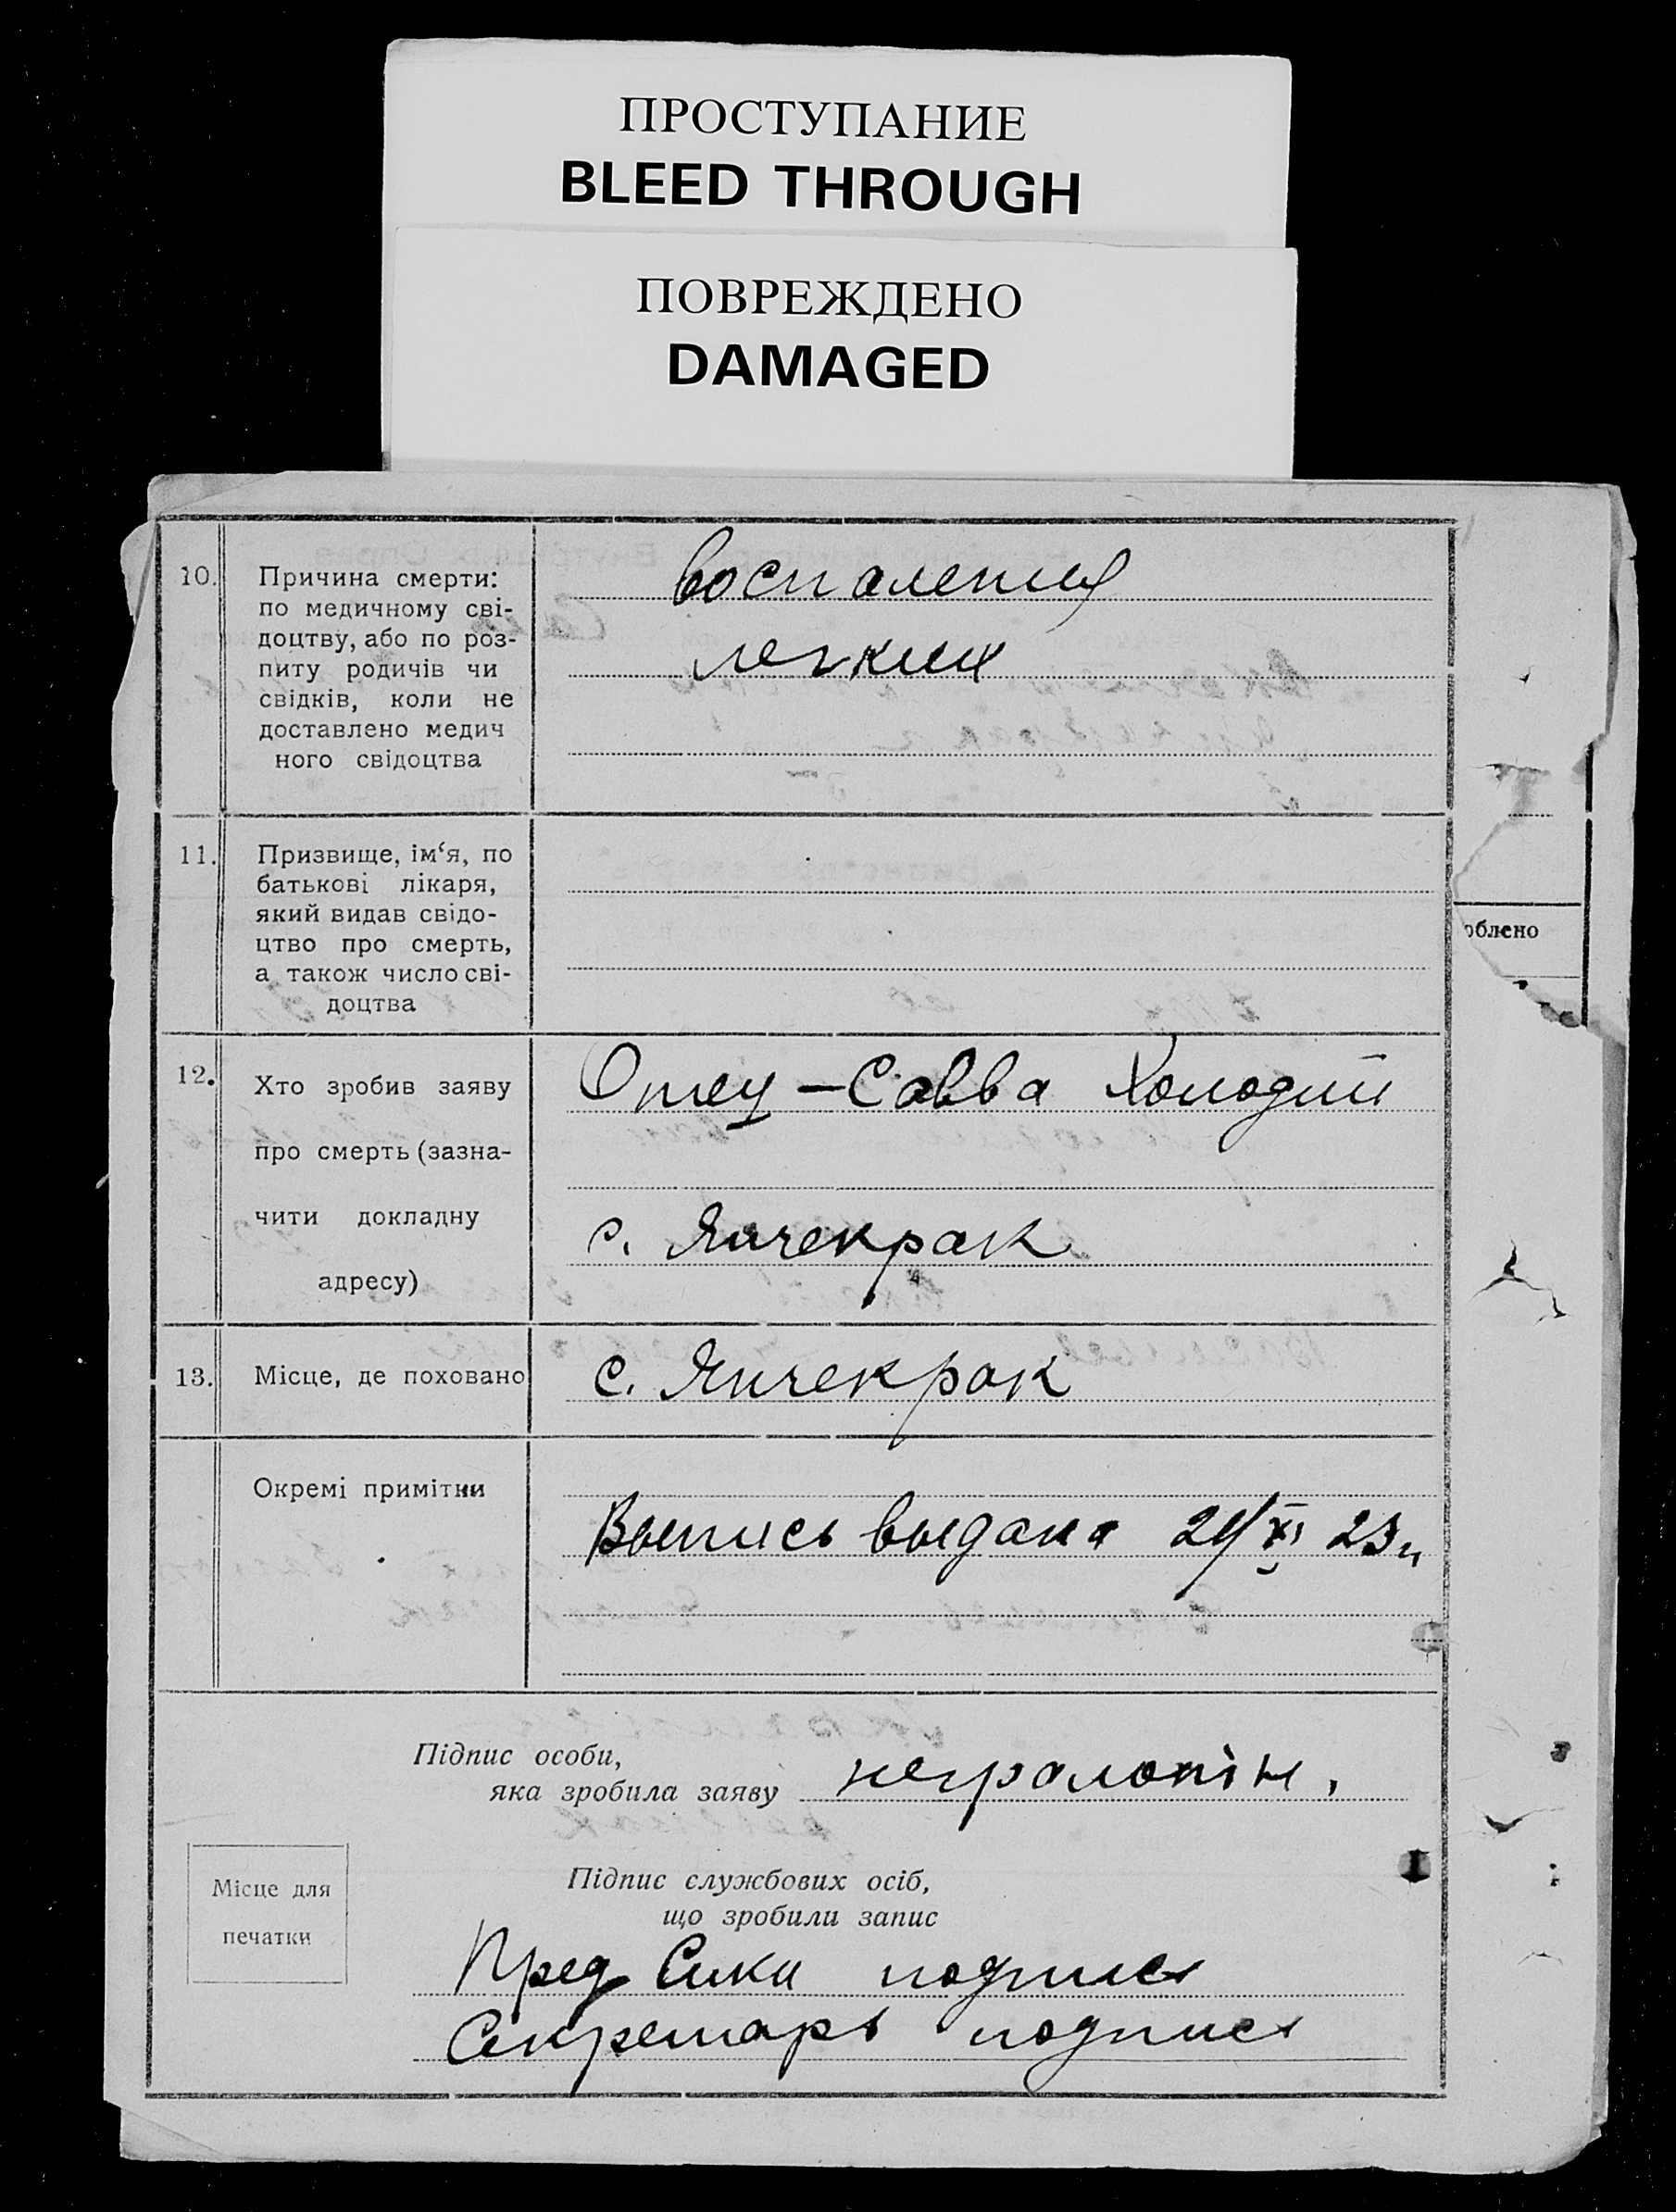 ПРОСТУПАНИЕ
BLEED THROUGH
ПОВРЕЖДЕНО
DAMAGED
10.
Причина смерти:
по медичному сві-
доцтву, або по роз-
питу родичів чи
свідків, коли не
доставлено медич
ного свідоцтва
воспаления
легких
11.
Призвище, ім‘я, по
батькові лікаря,
який видав свідо-
цтво про смерть,
а також число сві-
доцтва
облено
12.
Хто зробив заяву
про смерть (зазна-
чити докладну
адресу)
Отец – Савва Холодий
с. Янчекрак
13.
Місце, де поховано
с. Янчекрак
Окремі примітки
Выпись выдана 24/XI 23
Підпис особи,
яка зробила заяву
Місце для
печатки
Підпис службових осіб,
що зробили запис
Пред Сика подпись
Секретарь подпись